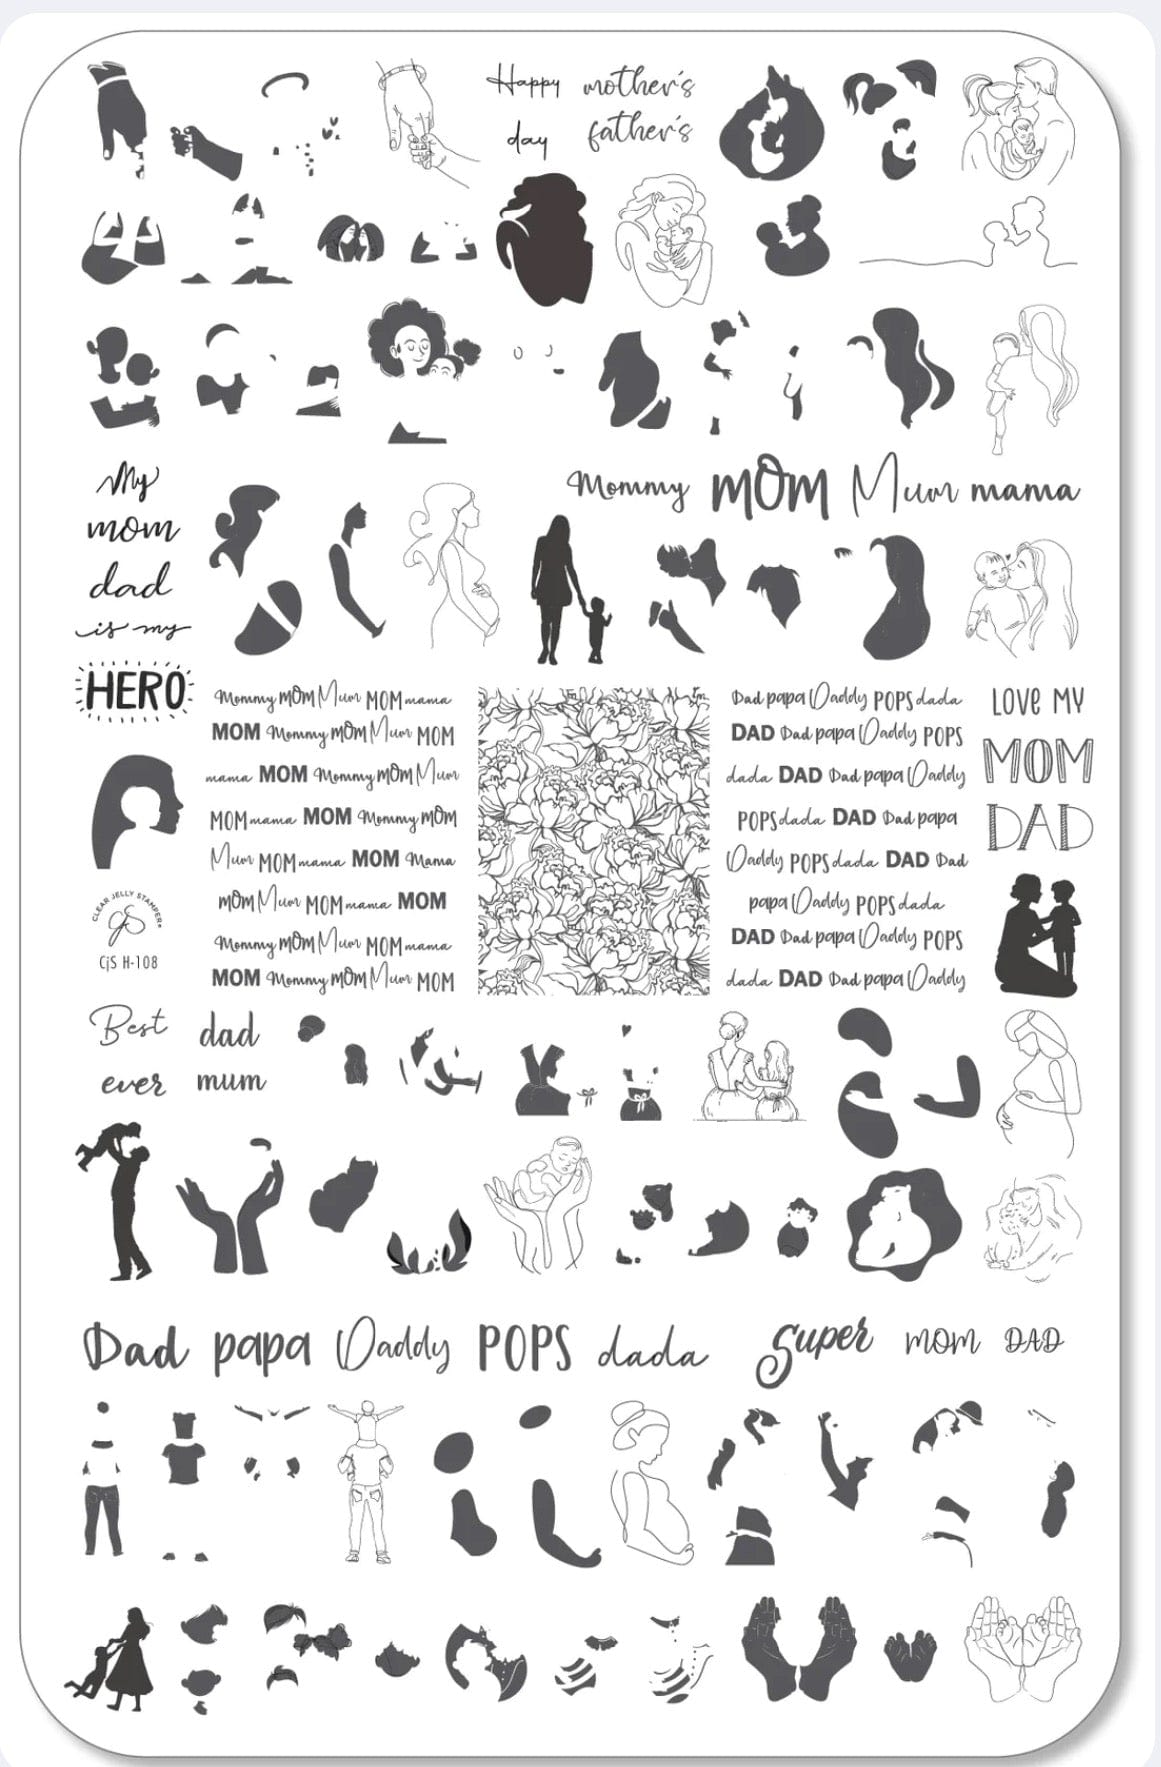 Happy mother's
day father's
Mommy MOM Mum mama
My
mom
dad
is my
HERO
Mommy MOM Mum MOM mama
MOM Mommy MOM Mum MOM
mama MOM Mommy MOM Mum
MOM mama MOM Mommy MOM
Mum MOM mama MOM Mama
MOM Mum MOM mama MOM
Mommy MOM Mum MOM mama
MOM Mommy MOM Mum MOM
Dad papa Daddy POPS dada
DAD Dad papa Daddy POPS
dada DAD Dad papa Daddy
POPS dada DAD Dad papa
Daddy POPS dada DAD Dad
papa Daddy POPS dada
DAD Dad papa Daddy POPS
dada DAD Dad papa Daddy
LOVE MY
MOM
DAD
CLEAR JELLY STAMPER®
CjS
CjS H-108
Best dad
ever mum
Dad papa Daddy POPS dada Super mom DAD